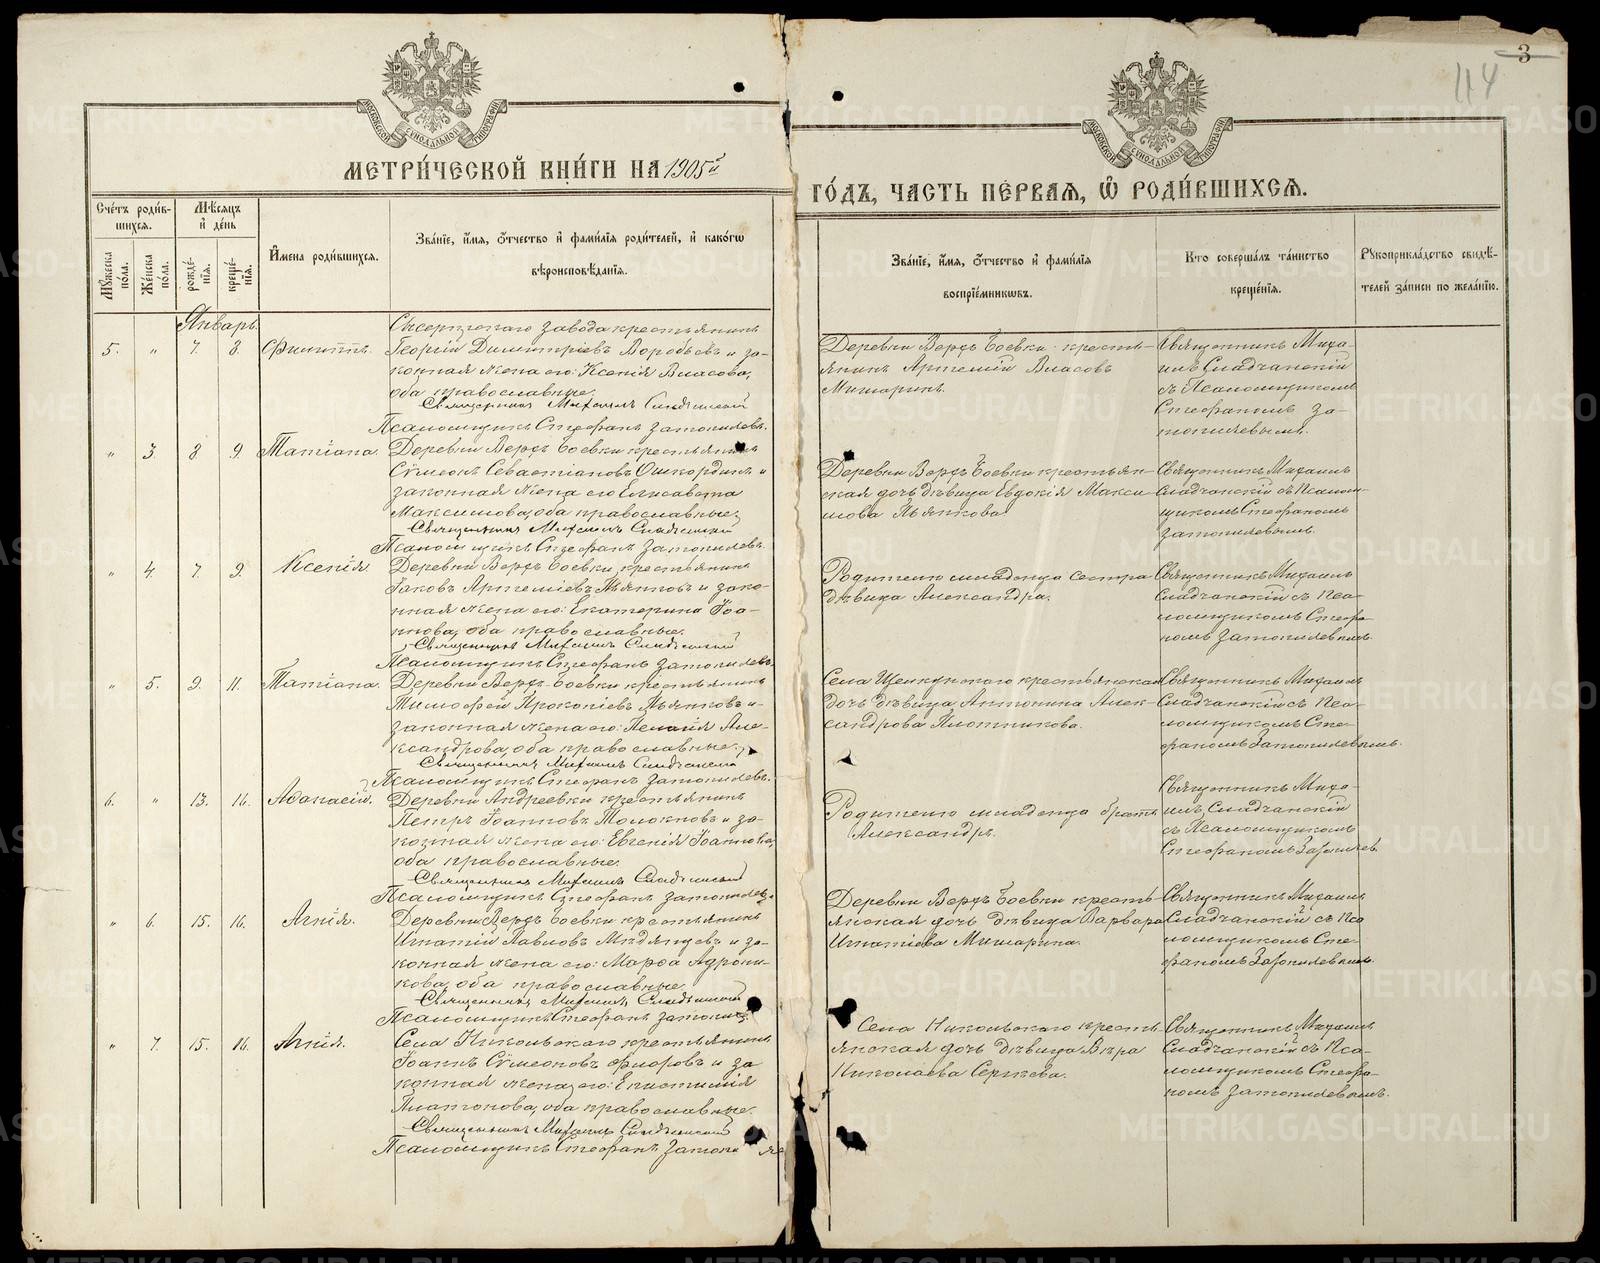 3
114
МОСКОВСКОЙ СѴНОДАЛЬНОЙ ТИПОГРАФІИ
МОСКОВСКОЙ СѴНОДАЛЬНОЙ ТИПОГРАФІИ
МЕТРИ́ЧЕСКОЙ КНИ́ГИ НА 1905й
ГО́ДЪ, ЧАСТЬ ПЕ́РВАЯ, Ѽ РОДИ́ВШИХСЯ.
Сче́тъ роди́в-
шихся.
Мѣ́сяцъ
и де́нь
Му́жеска
по́ла.
Же́нска
по́ла.
рожде́-
нія.
креще́-
нія.
И́мена роди́вшихся.
Зва́ніе, и́мя, о́тчество и фами́лія роди́телей, и како́гѡ
вѣроисповѣ́данія.
Зва́ніе, и́мя, о́тчество и фами́лія
воспріе́мниковъ.
Кто соверша́лъ та́инство
креще́нія.
Рукоприкла́дство свидѣ́-
телей за́писи по жела́нію.
Январь.
5. " 7. 8. Филиппъ.
Сысертскаго завода крестьянинъ
Георгій Димитріевъ Воробьевъ и за-
конная жена его: Ксенія Власова,
оба православные.
Священникъ Михаилъ Сладчанскій
Псаломщикъ Стефанъ Затопляевъ.
Деревни Верх. Боевки кресть-
янинъ Артемій Власовъ
Мишаринъ.
Священникъ Миха-
илъ Сладчанскій
съ Псаломщикомъ
Стефаномъ За-
топляевымъ.
" 3. 8 9. Татіана.
Деревни Верх. Боевки крестьянинъ
Сѵмеонъ Севастіановъ и
законная жена его Елисавета
Максимова, оба православные.
Священникъ Михаилъ Сладчанскій
Псаломщикъ Стефанъ Затопляевъ.
Деревни Верх. Боевки крестьян-
ская дочь дѣвица Евдокія Макси-
мова Пьянкова.
Священникъ Михаилъ
Сладчанскій съ Псалом-
щикомъ Стефаномъ
Затопляевымъ.
" 4. 7. 9. Ксенія.
Деревни Верх. Боевки крестьянинъ
Іаковъ Артеміевъ Пьянковъ и зако-
нная жена его: Екатерина Іоа-
ннова, оба православные.
Священникъ Михаилъ Сладчанскій
Псаломщикъ Стефанъ Затопляевъ.
Родителю младенца сестра
дѣвица Александра.
Священникъ Михаилъ
Сладчанскій съ Пса-
ломщикомъ Стефа-
номъ Затопляевымъ.
" 5. 9. 11. Татіана.
Деревни Верх. Боевки крестьянинъ
Тимофей Прокопіевъ Пьянковъ и
законная жена его: Пелагія Але-
ксандрова, оба православные.
Священникъ Михаилъ Сладчанскій
Псаломщикъ Стефанъ Затопляевъ.
Села Щелкунскаго крестьянская
дочь дѣвица Антонина Алек-
сандрова Плотникова.
Священникъ Михаилъ
Сладчанскій съ Пса-
ломщикомъ Сте-
фаномъ Затопляевымъ.
6. " 13. 16. Аѳанасій.
Деревни Андреевки крестьянинъ
Петръ Іоанновъ Толокновъ и за-
конная жена его: Евгенія Іоаннова,
оба православные.
Священникъ Михаилъ Сладчанскій
Псаломщикъ Стефанъ Затопляевъ.
Родителю младенца братъ
Александръ.
Священникъ Миха-
илъ Сладчанскій
съ Псаломщикомъ
Стефаномъ Затопляев.
" 6. 15. 16. Агнія.
Деревни Верх. Боевки крестьянинъ
Игнатій Павловъ Мѣдянцевъ и за-
конная жена его: Марѳа Адрони-
кова, оба православные.
Священникъ Михаилъ Сладчанскій
Псаломщикъ Стефанъ Затопляевъ.
Деревни Верх. Боевки кресть-
янская дочь дѣвица Варвара
Игнатіева Мишарина.
Священникъ Михаилъ
Сладчанскій съ Пса-
ломщикомъ Сте-
фаномъ Затопляевымъ.
" 7. 15. 16. Агнія.
Села Никольскаго крестьянинъ
Іоаннъ Сѵмеоновъ Флоровъ и за
конная жена его: Епистимія
Платонова, оба православные.
Священникъ Михаилъ Сладчанскій
Псаломщикъ Стефанъ
Села Никольскаго кресть-
янская дочь дѣвица Вѣра
Николаева Сергѣева.
Священникъ Михаилъ
Сладчанскій съ Пса-
ломщикомъ Стефа-
номъ Затопляевымъ.
METRIKI.GASO-URAL.RU